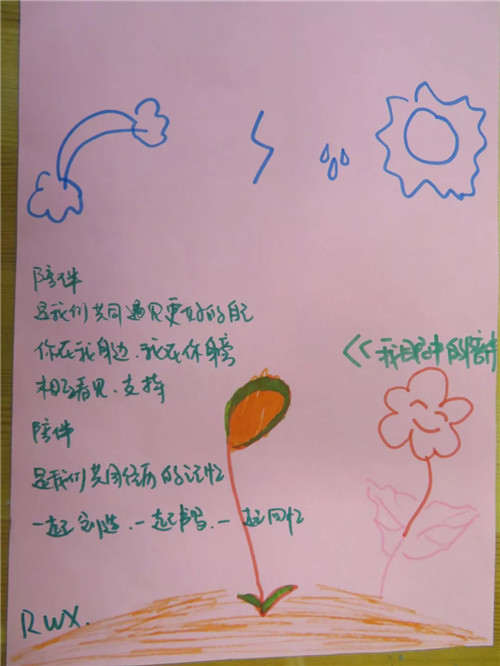 <<我眼中的陪伴
陪伴
是我们共同遇见更好的自己
你在我身边.我在你身旁
相互看见.支持
陪伴
是我们共同经历的记忆
一起创造.一起书写.一起回忆
RWX.